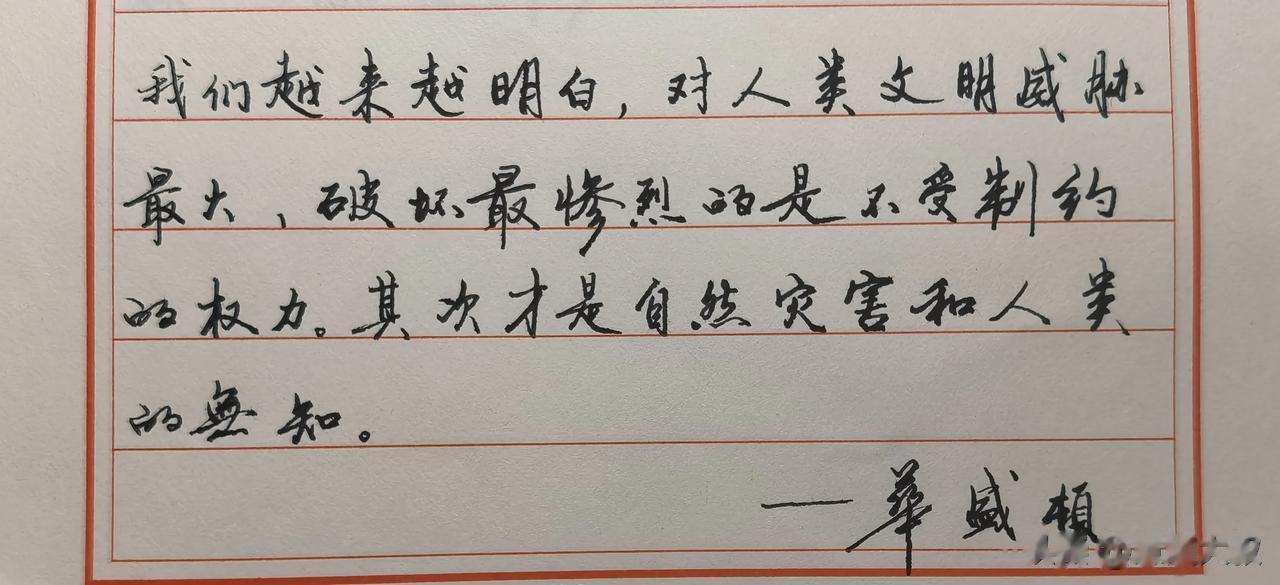 我们越来越明白，对人类文明威胁
最大、破坏最惨烈的是不受制约
的权力。其次才是自然灾害和人类
的無知。
——華盛頓